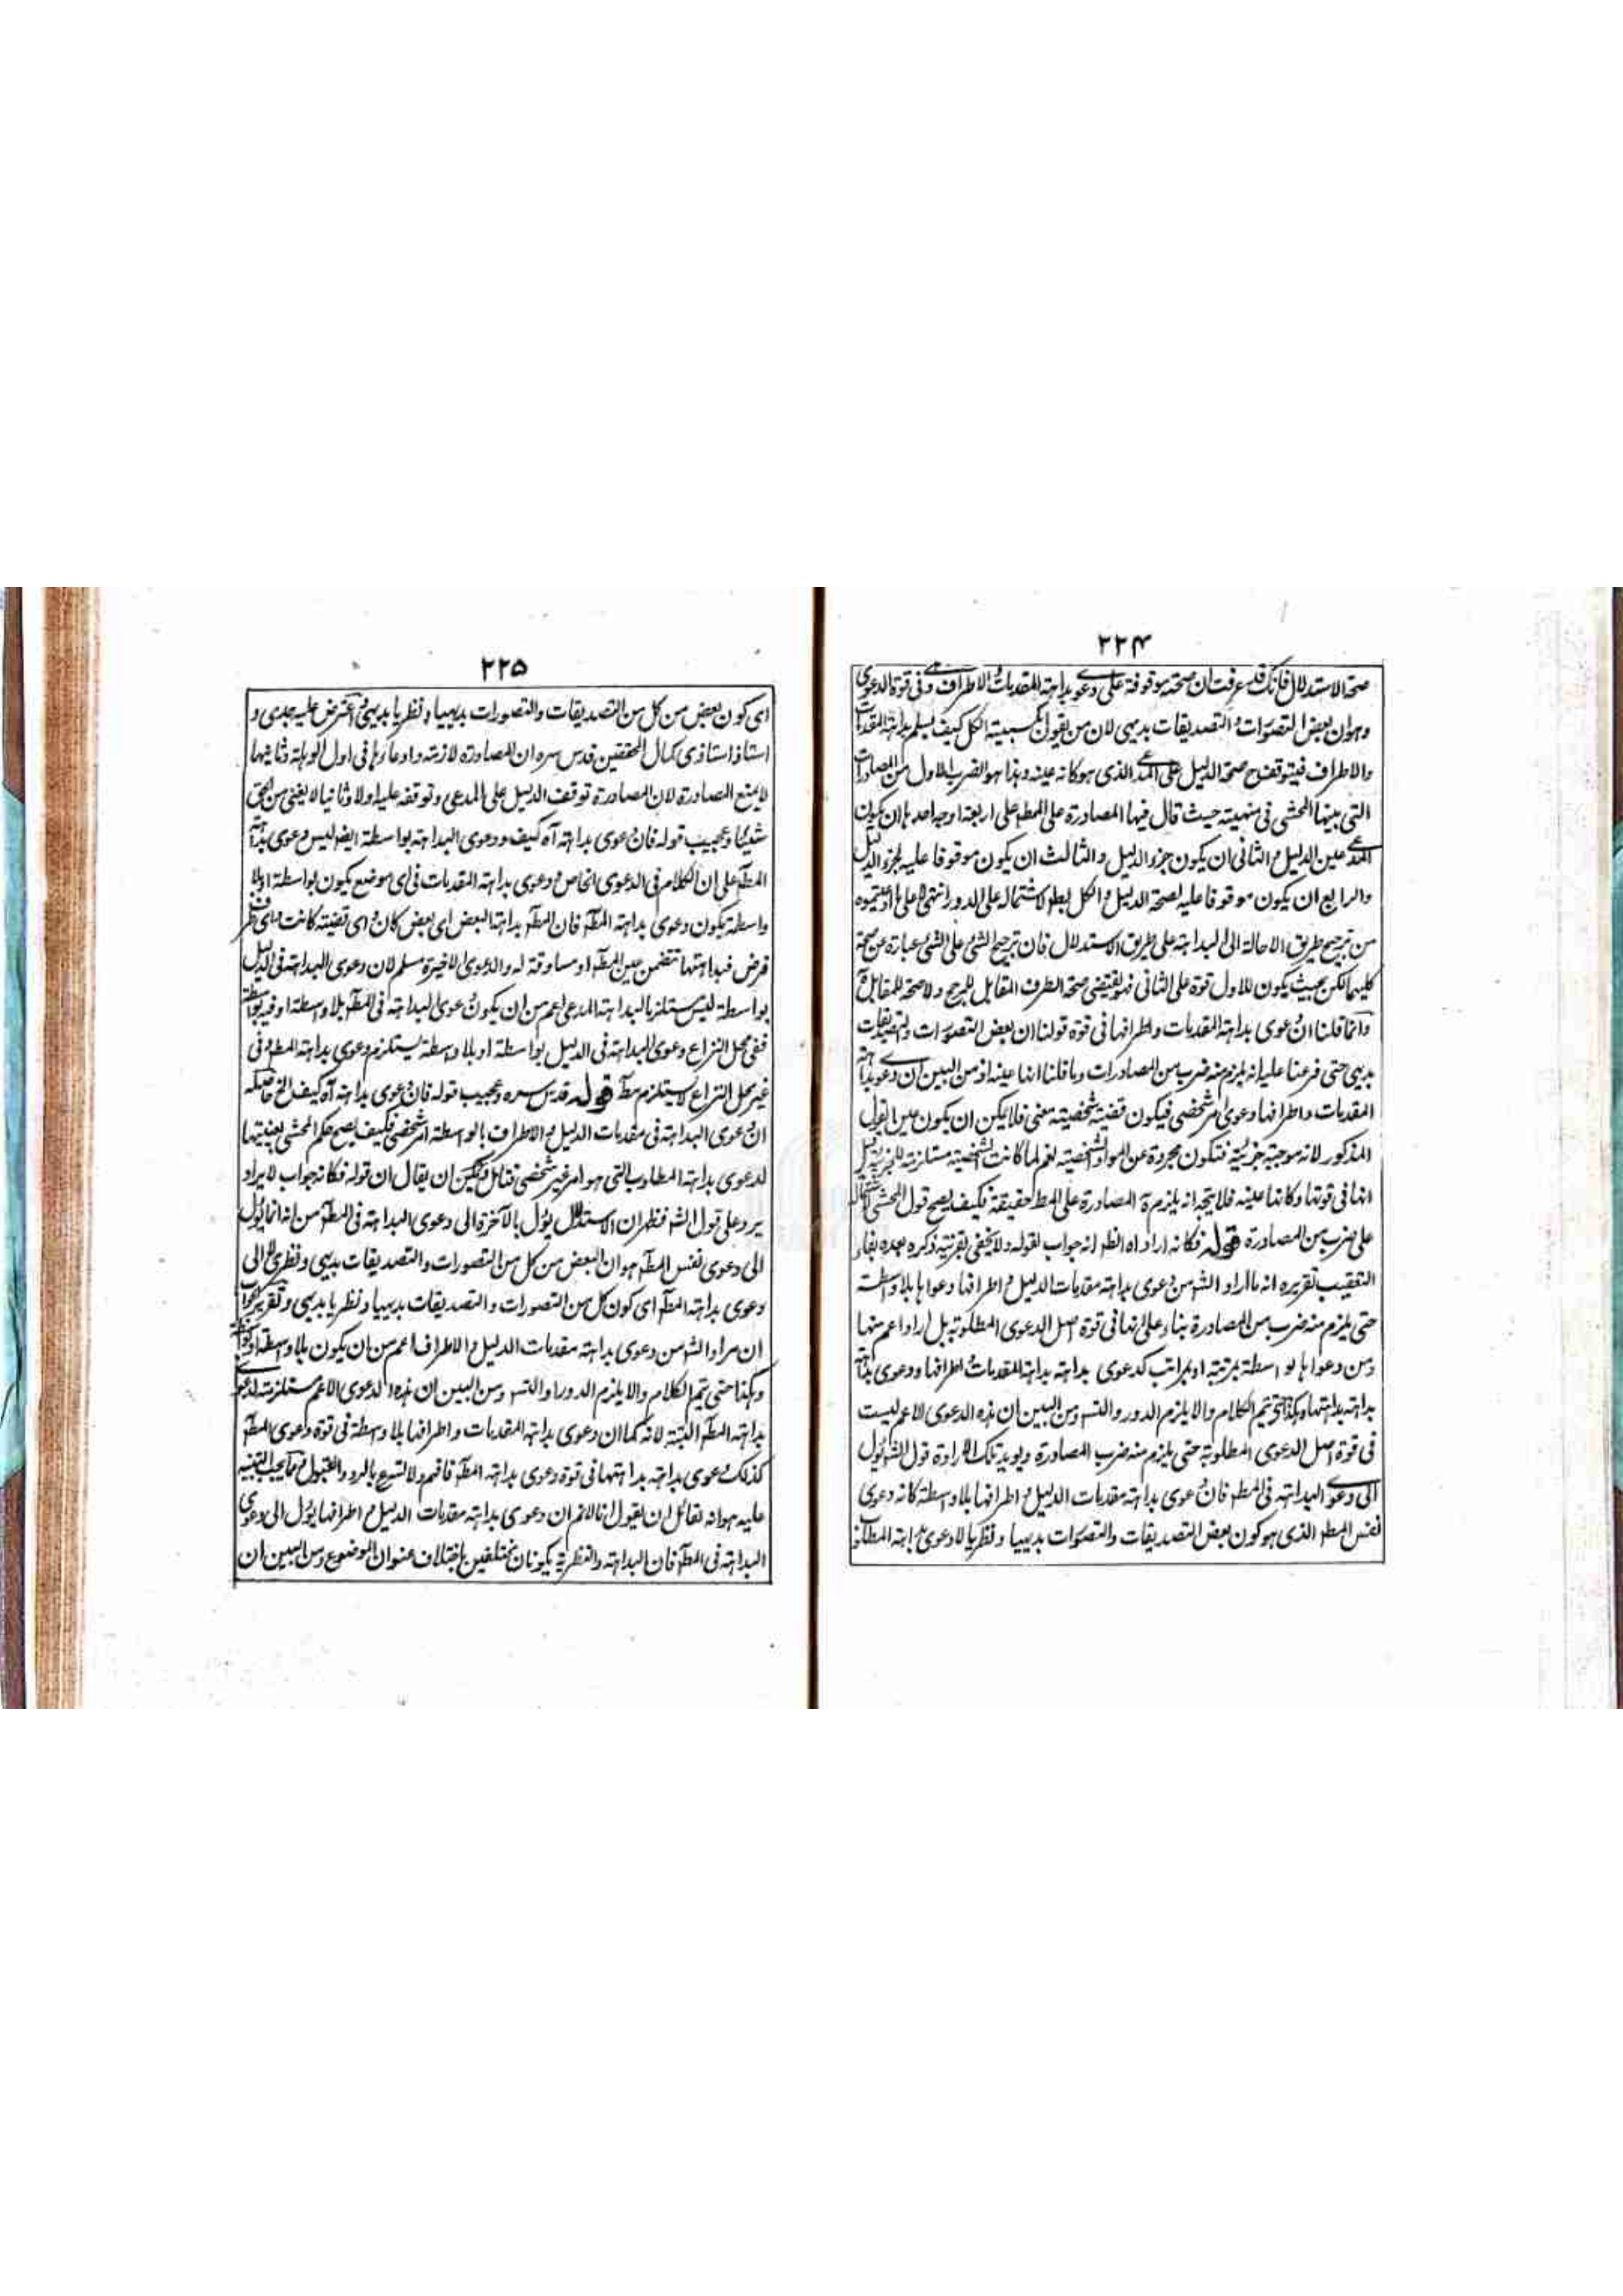 ٢٢٤
صحة الاستدلال فانك قد عرفت ان صحته موقوفة على دعوى بداهة المقدمات والاطراف وهى فى قوة الدعوى
وهو ان بعض التصورات والتصديقات بديهى لان من يقول بكسبية الكل كيف يسلم بداهة المقدمات
والاطراف فيتوقف صحة الدليل على المدعى الذى هو كانه عينه وهذا هو الضرب الاول من المصادرات
التى بينها المحشى فى منهيته حيث قال فيها المصادرة على المط على اربعة اوجه احدها ان يكون
المدعى عين الدليل والثانى ان يكون جزء الدليل والثالث ان يكون موقوفا عليه لجزء الدليل
والرابع ان يكون موقوفا عليه لصحة الدليل والكل بط لاشتماله على الدور انتهى على ما
من ترجيح طريق الاحالة الى البداهة على طريق الاستدلال فان ترجيح الشئ على الشئ عبارة عن صحة
كليهما لكن بحيث يكون للاول قوة على الثانى فهو يقتضى صحة الطرف المقابل للمرجح ولا صحة للمقابل
وانما قلنا ان دعوى بداهة المقدمات واطرافها فى قوة قولنا ان بعض التصورات والتصديقات
بديهى حتى فرعنا عليه انه يلزم منه ضرب من المصادرات وما قلنا انها عينه اذ من البين ان دعوى بداهة
المقدمات واطرافها دعوى امر شخصى فيكون قضية شخصية معنى فلا يمكن ان يكون عين القول
المذكور لانه موجبة جزئية فتكون مجردة عن المواد الشخصية نعم لما كانت الشخصية مستلزمة للجزئية قيل
انها فى قوتها وكانها عينه فلا يتجه انه يلزم المصادرة على المط حقيقة فكيف يصح قول المحشى لاشتماله
على ضرب من المصادرة قوله فكانه اراد اه الظ انه جواب لقوله ولا يخفى بقرينة ذكره بعده بفاء
التعقيب تقريره انه ما اراد الشم من دعوى بداهة مقدمات الدليل واطرافها دعواها بلا واسطة
حتى يلزم منه ضرب من المصادرة بناء على انها فى قوة اصل الدعوى المطلوبة بل اراد اعم منها
ومن دعواها بواسطة بمرتبة او بمراتب كدعوى بداهة بداهة المقدمات واطرافها ودعوى بداهة
بداهة بداهتها وهكذا حتى يتم الكلام والا يلزم الدور والتس ومن البين ان هذه الدعوى الاعم ليست
فى قوة اصل الدعوى المطلوبة حتى يلزم منه ضرب المصادرة ويؤيد تلك الارادة قول الشم يؤل
الى دعوى البداهة فى المط فان دعوى بداهة مقدمات الدليل واطرافها بلا واسطة كانه دعوى
نفس المط الذى هو كون بعض التصديقات والتصورات بديهيا ونظريا لا دعوى بداهة المطلوب
٢٢٥
اى كون بعض من كل من التصديقات والتصورات بديهيا ونظريا بديهى واعترض عليه جدى و
استاذ استاذى كمال المحققين قدس سره ان المصادرة لازمة وادعاؤها فى اول الوهلة وثانيها
لا يمنع المصادرة لان المصادرة توقف الدليل على المدعى وتوقفه عليه اولا وثانيا لا يغنى من الحق
شيئا ويجيب قوله فان دعوى بداهة اه كيف ودعوى البداهة بواسطة ايضا ليس دعوى بداهة
المط على ان الكلام فى الدعوى الخاص ودعوى بداهة المقدمات فى اى موضع يكون بواسطة او بلا
واسطة يكون دعوى بداهة المط فان المط بداهة البعض اى بعض كان واى قضية كانت
فرض فبداهتها تتضمن عين المط او مساوقة له والدعوى الاخيرة مسلم لان دعوى البداهة فى الدليل
بواسطة ليس مستلزما لبداهة المدعى اعم من ان يكون دعوى البداهة فى المط بلا واسطة او فيه بواسطة
ففى محل النزاع دعوى البداهة فى الدليل بواسطة او بلا واسطة يستلزم دعوى بداهة المط وفى
غير محل النزاع لا يستلزم مط قوله قدس سره ويجيب قوله فان دعوى بداهة اه كيف الخ حاصله
ان دعوى البداهة فى مقدمات الدليل والاطراف بالواسطة امر شخصى فكيف يصح حكم المحشى بعينيتها
لدعوى بداهة المطلوب التى هو امر غير شخصى فتامل ويمكن ان يقال ان قوله فكانه جواب لايراد
يرد على قول الشم فظهر ان الاستدلال يؤل بالآخرة الى دعوى البداهة فى المط من انه انما يؤل
الى دعوى نفس المط هو ان البعض من كل من التصورات والتصديقات بديهى ونظرى لا الى
دعوى بداهة المط اى كون كل من التصورات والتصديقات بديهيا ونظريا بديهى وتقرير الجواب
ان مراد الشم من دعوى بداهة مقدمات الدليل والاطراف اعم من ان يكون بلا واسطة او بواسطة
وهكذا حتى يتم الكلام والا يلزم الدور او التس ومن البين ان هذه الدعوى الاعم مستلزمة لدعوى
بداهة المط البتة لانه كما ان دعوى بداهة المقدمات واطرافها بلا واسطة فى قوة دعوى المط
كذلك دعوى بداهة بداهتها فى قوة دعوى بداهة المط فافهم ولا تسرع بالرد والقبول ومما يجب التنبيه
عليه هو انه لقائل ان يقول انا لا نم ان دعوى بداهة مقدمات الدليل واطرافها يؤل الى دعوى
البداهة فى المط فان البداهة والنظرية يكونان مختلفين باختلاف عنوان الموضوع ومن البين ان